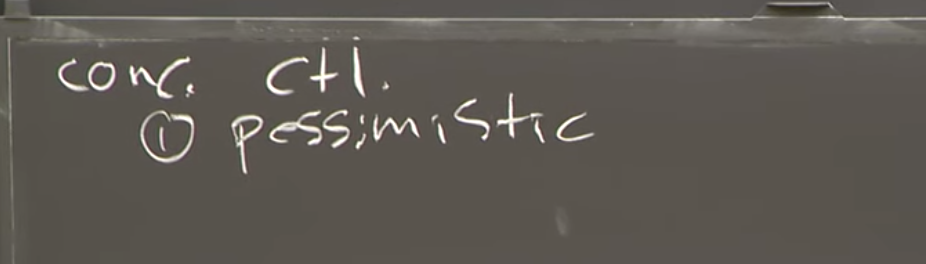 conc. ctl.
① pessimistic